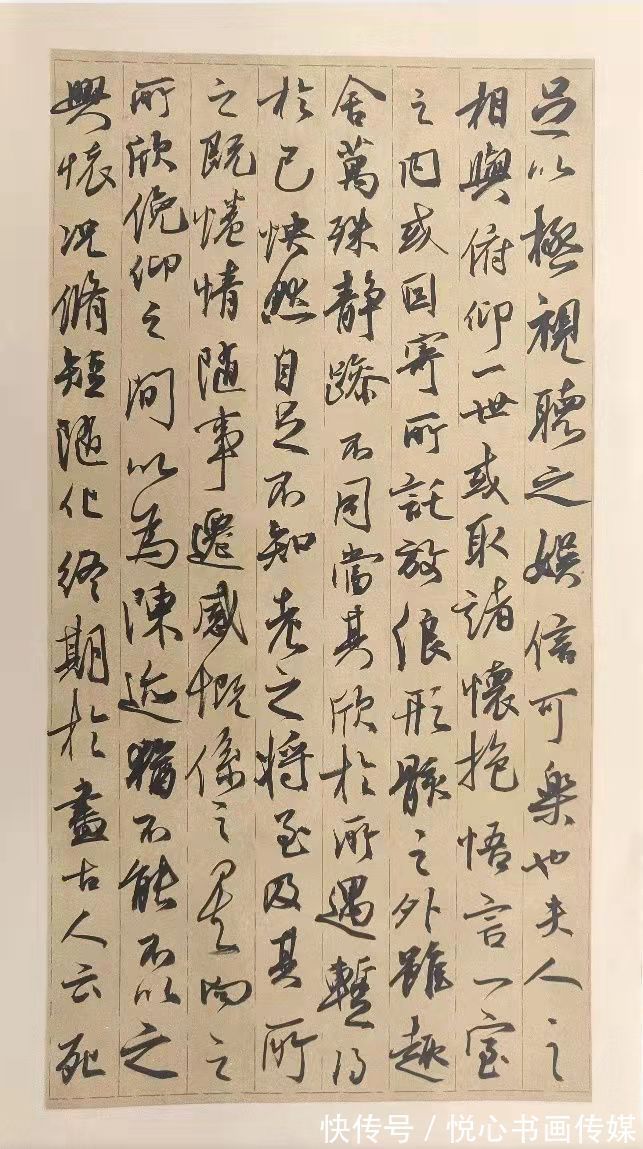 足以極視聽之娛信可樂也夫人之
相與俯仰一世或取諸懷抱悟言一室
之內或因寄所託放浪形骸之外雖趣
舍萬殊靜躁不同當其欣於所遇暫得
於己怏然自足不知老之將至及其所
之既惓情隨事遷感慨係之矣向之
所欣俛仰之間以為陳迹猶不能不以之
興懷況脩短隨化終期於盡古人云死
快传号/悦心书画传媒